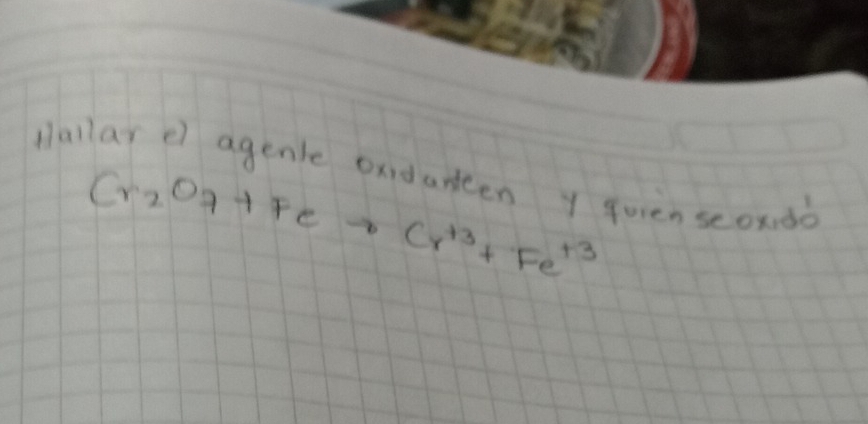 Hallar el agente oxidanteen y quién se oxidó
Cr₂O₇ + Fe → Cr⁺³ + Fe⁺³